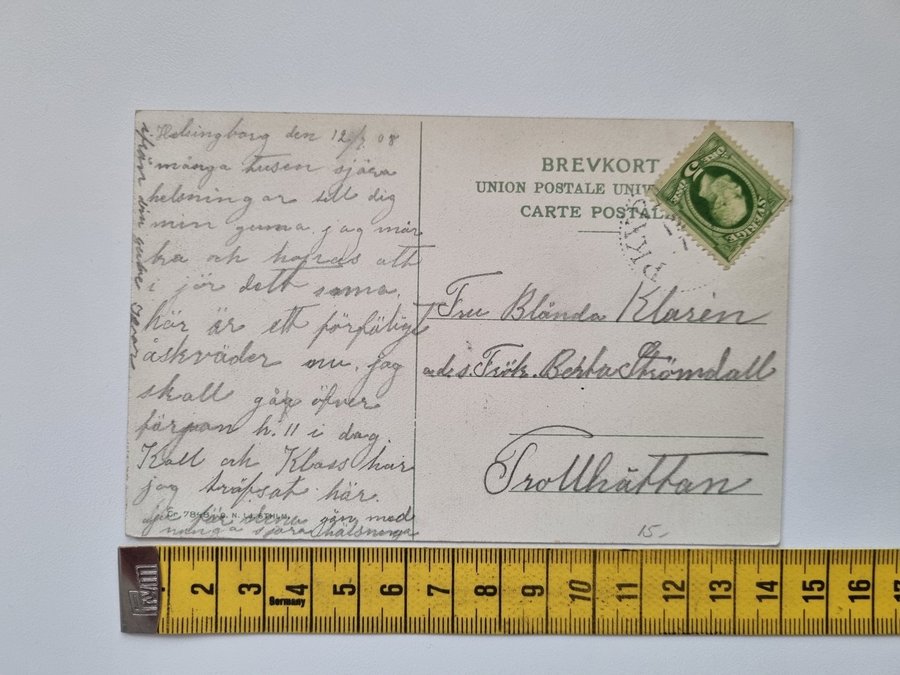 Helsingborg den 12/7 08
många tusen sjära
helsningar till dig
min gumma. jag mår
bra och hopas att
i jör dett sama.
här är ett förfäligt
åskväder nu. jag
skall gåg öfver
färjan h. 11 i dag.
Kall och Klass har
jag träfsat här.
med
många sjära hälsninga
ifrån din gube
BREVKORT
UNION POSTALE UNIV
CARTE POSTALE
SVERIGE
5
PKXP
Fru Blånda Klarin
ads. Frök. Berta Strömdall
Trollhättan
15.-
2 3 4 5 6 7 8 9 10 11 12 13 14 15 16 17
Germany